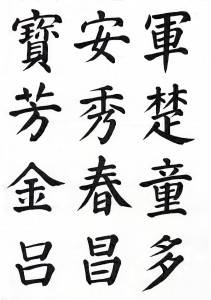 軍楚童多
安秀春昌
寶芳金呂